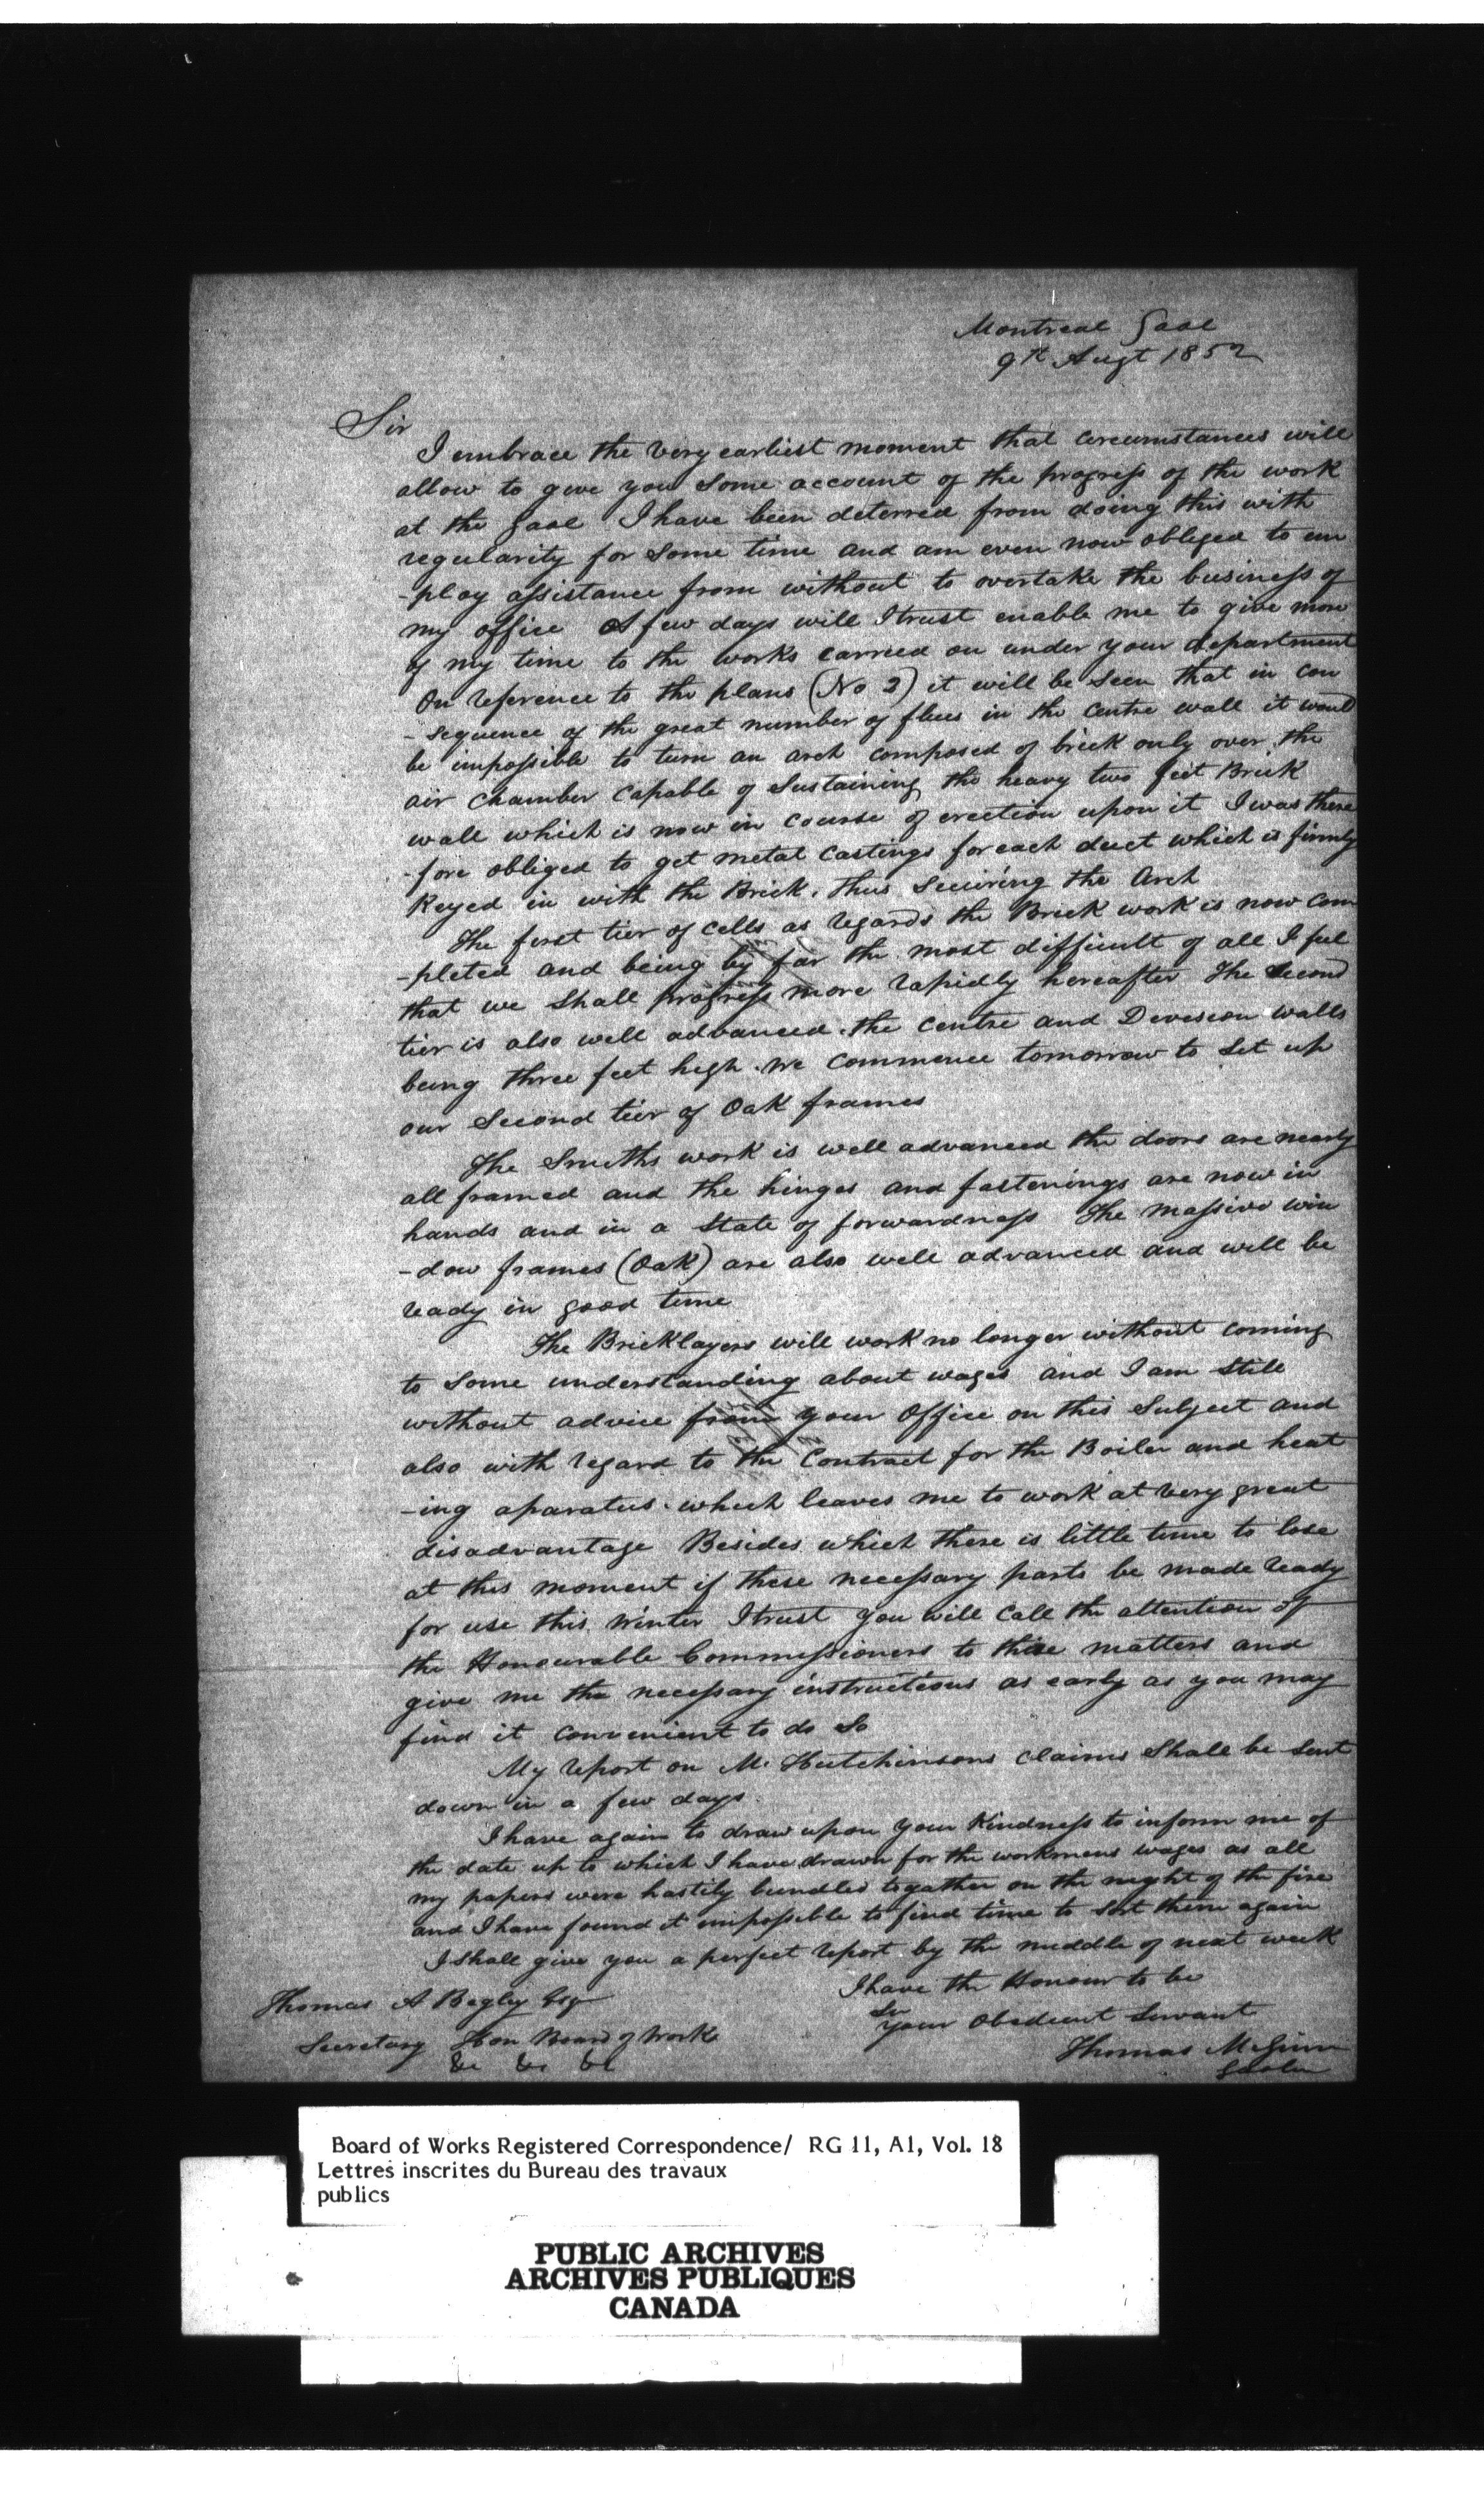 Montreal Gaol
9th Augt 1852
Sir
I embrace the very earliest moment that circumstances will
allow to give you some account of the progress of the work
at the Gaol I have been deterred from doing this with
regularity for some time and am even now obliged to em
-ploy assistance from without to overtake the business of
my office A few days will I trust enable me to give more
of my time to the works carried on under your department
On reference to the plans (No 2) it will be seen that in con
-sequence of the great number of flues in the centre wall it would
be impossible to turn an arch composed of brick only over the
air chamber capable of sustaining the heavy two feet Brick
wall which is now in course of erection upon it I was there
-fore obliged to get metal castings for each duct which is firmly
Keyed in with the Brick. thus securing the Arch
The first tier of cells as regards the Brick work is now com
-pleted and being by far the most difficult of all I feel
that we shall progress more rapidly hereafter The second
tier is also well advanced. the centre and Devesion walls
being three feet high. We commence tomorrow to set up
our second tier of Oak frames
The Smiths work is well advanced the doors are nearly
all framed and the hinges and fastenings are now in
hands and in a state of forwardness The massive win
-dow frames (Oak) are also well advanced and will be
ready in good time
The Bricklayers will work no longer without coming
to some understanding about wages and I am still
without advice from your Office on this subject and
also with regard to the Contract for the Boiler and heat
-ing aparatus. which leaves me to work at very great
disadvantage Besides which there is little time to lose
at this moment if these necessary parts be made ready
for use this winter I trust you will call the attention of
the Honourable Commissioners to these matters and
give me the necessary instructions as early as you may
find it convenient to do so
My report on Mr Hutchinsons claims shall be sent
down in a few days.
I have again to draw upon your Kindness to inform me of
the date up to which I have drawn for the workmens wages as all
my papers were hastily bundled together on the night of the fire
and I have found it impossible to find time to set them again
I shall give you a perfect report by the middle of next week
I have the Honour to be
Sir
Your Obedient Servant
Thomas McGinn
Gaoler
Thomas A Begley Esq
Secretary Hon Board of Work
&c &c &c
Board of Works Registered Correspondence/ RG 11, A1, Vol. 18
Lettres inscrites du Bureau des travaux
publics
PUBLIC ARCHIVES
ARCHIVES PUBLIQUES
CANADA